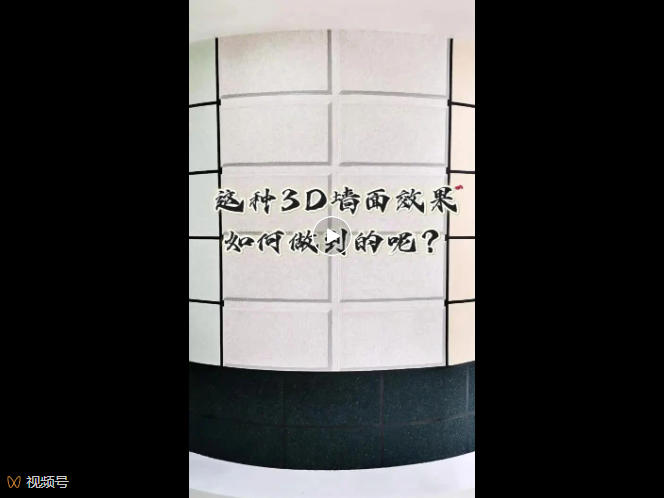 这种3D墙面效果
如何做到的呢？
视频号